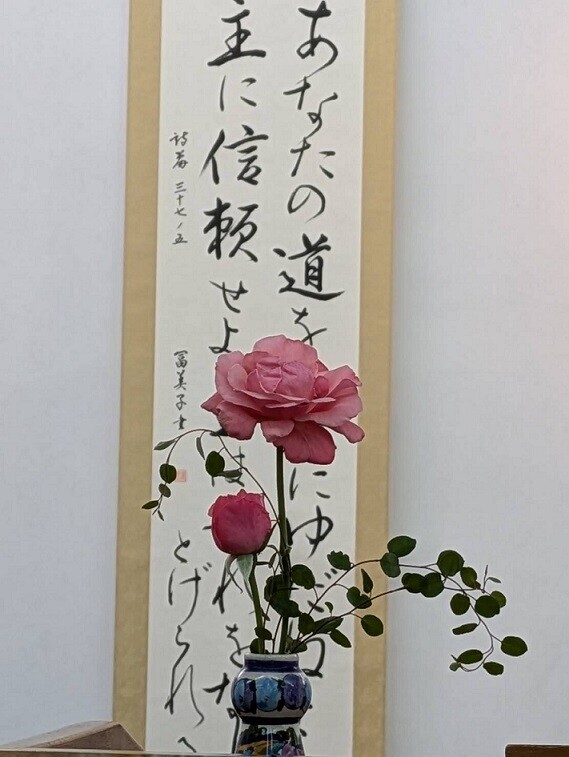 あなたの道を にゆだね
主に信頼せよ は れをな
とげられ
詩篇 三十七ノ五
冨美子書